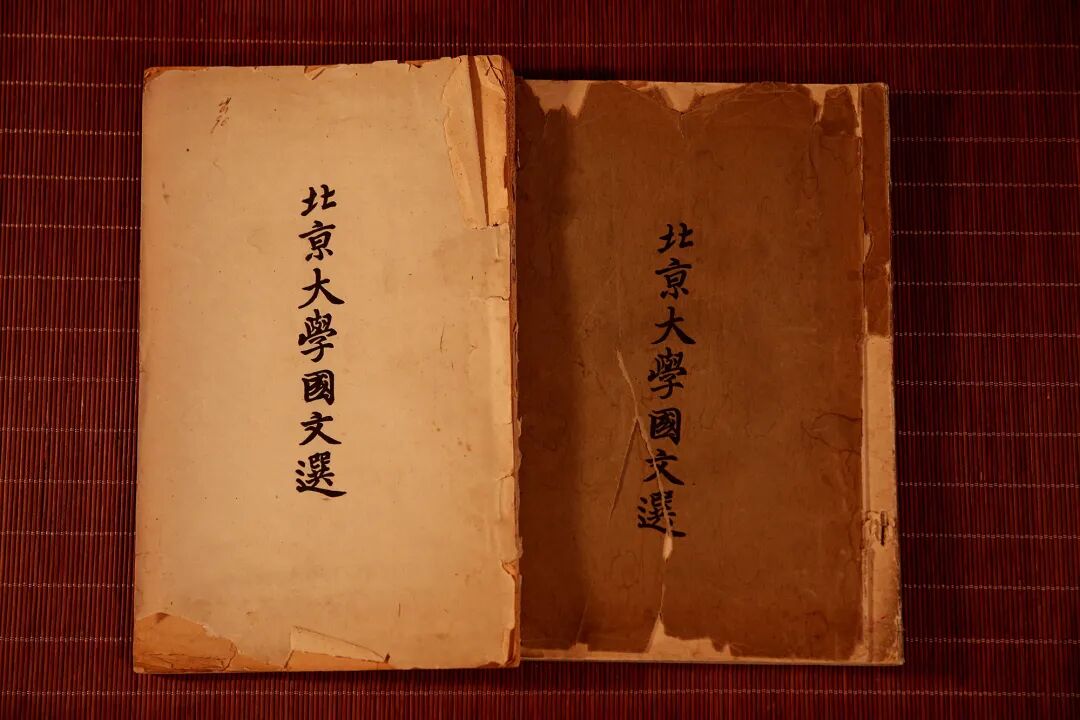 北京大學國文選
北京大學國文選